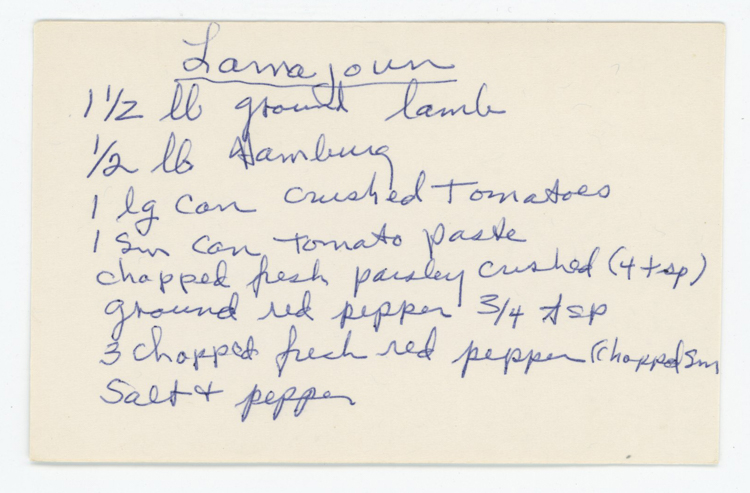 Lamajoun
1 1/2 lb ground lamb
1/2 lb Hamburg
1 lg can crushed Tomatoes
1 sm can tomato paste
chopped fresh paisley crushed (4 tsp)
ground red pepper 3/4 tsp
3 chopped fresh red pepper (chopped sm
Salt + pepper